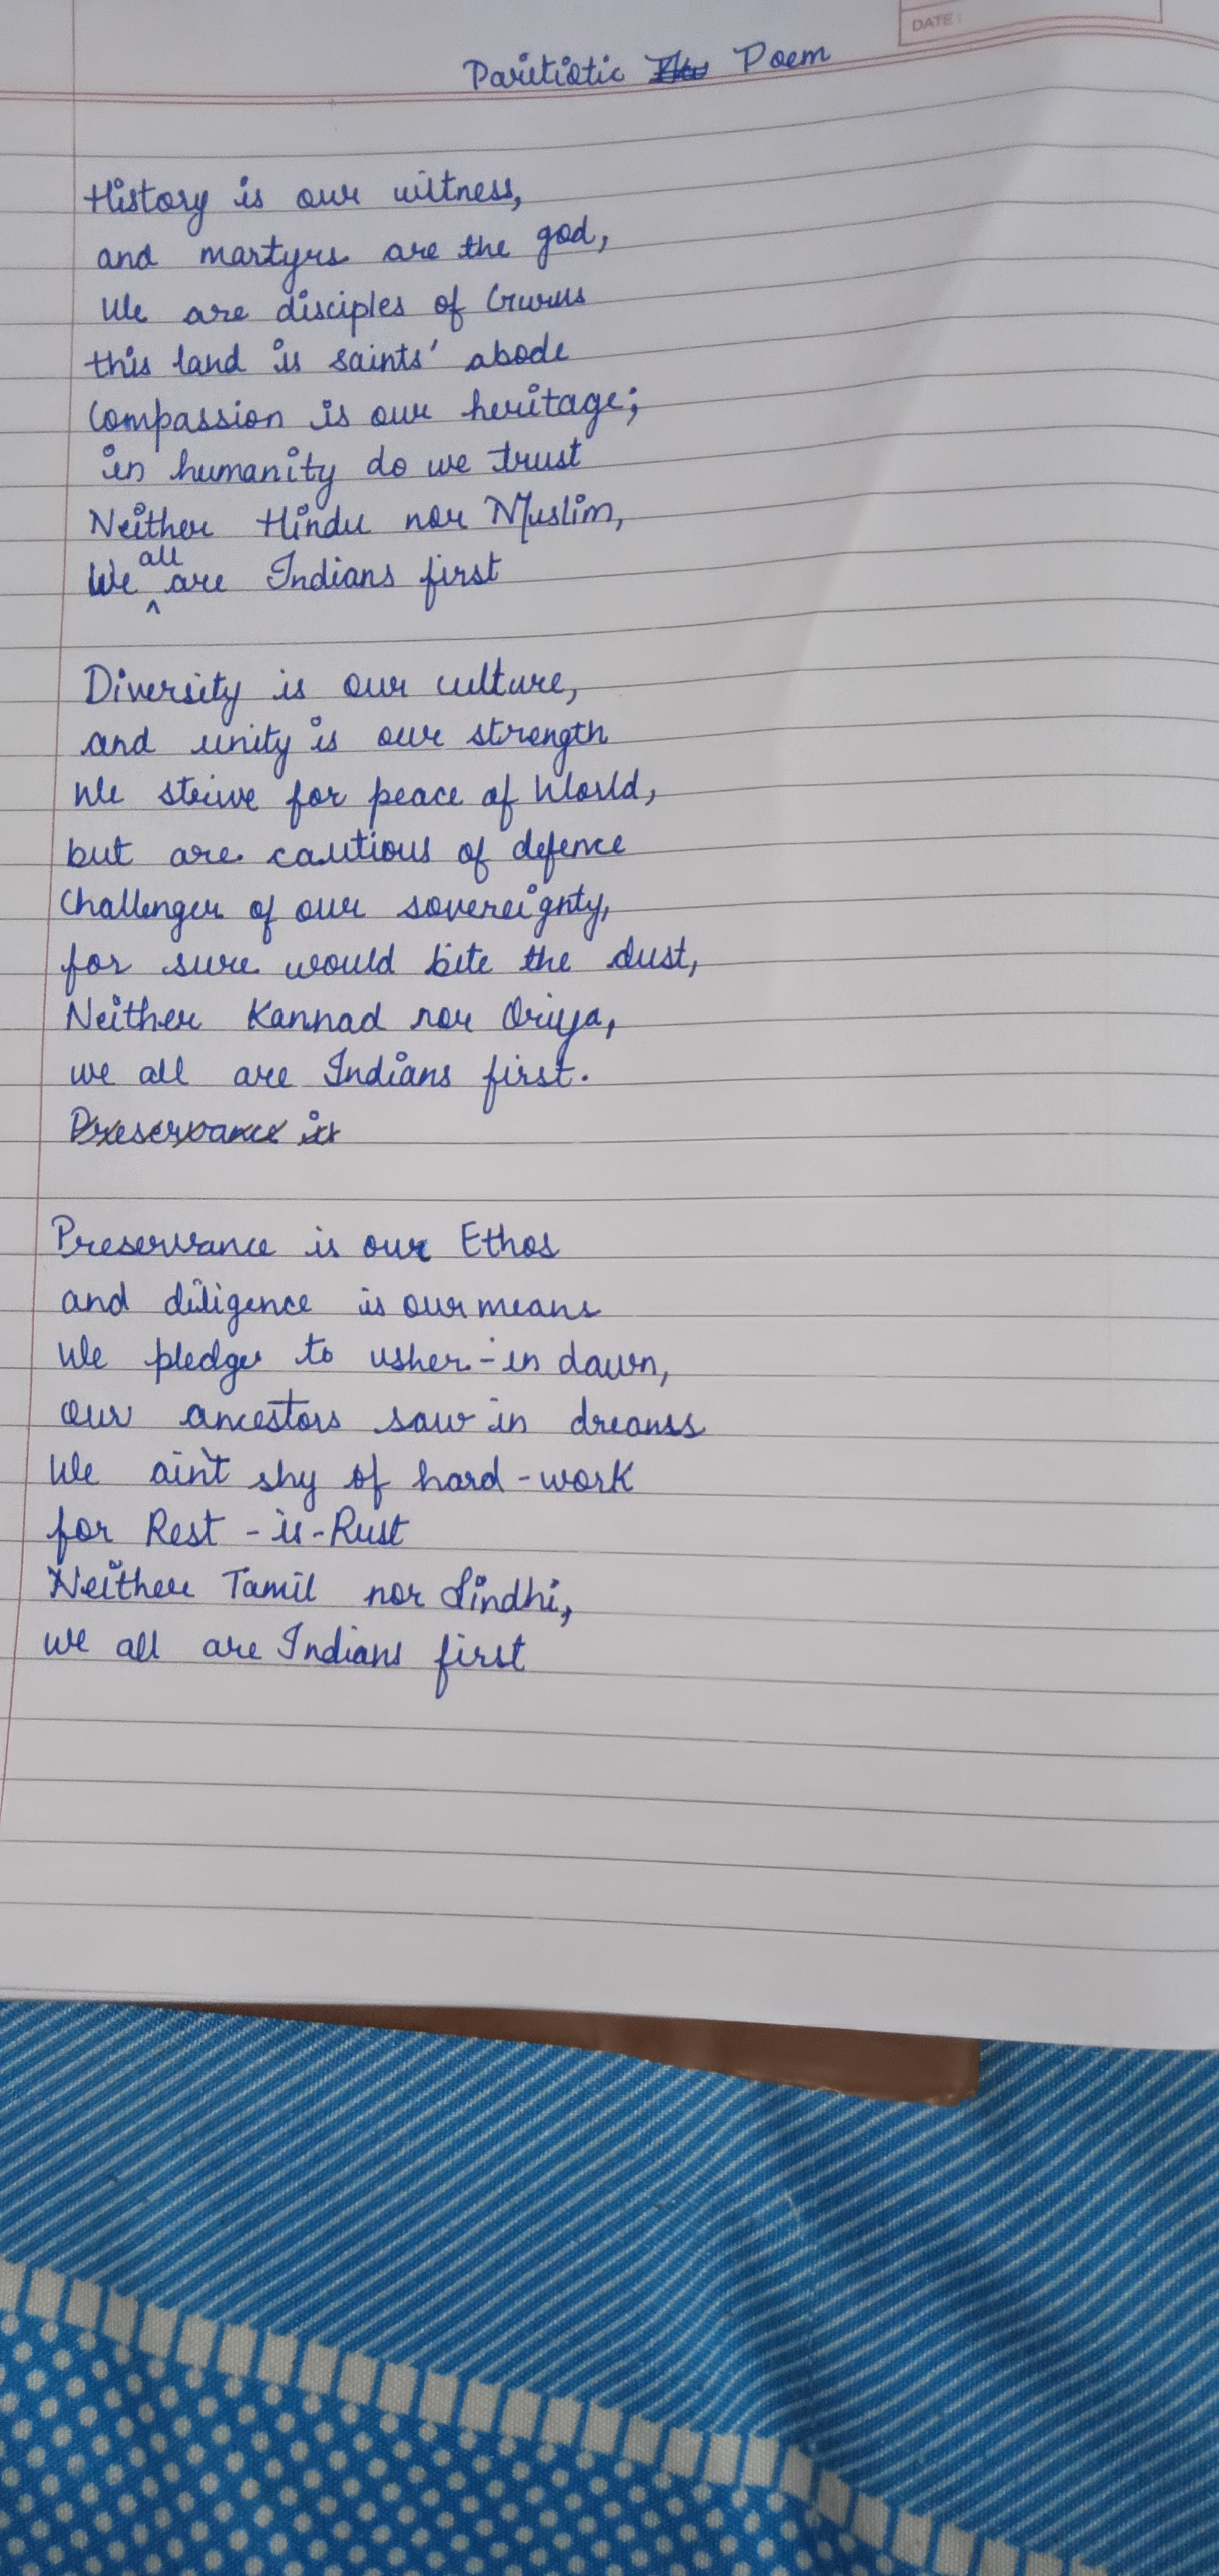 DATE :
Paritiotic Poem
History is our witness,
and martyrs are the god,
We are disciples of Gurus
this land is saints' abode
Compassion is our heritage;
in humanity do we trust
Neither Hindu nor Muslim,
We all are Indians first
Diversity is our culture,
and unity is our strength
We strive for peace of World,
but are cautious of defence
Challenger of our sovereignty,
for sure would bite the dust,
Neither Kannad nor Oriya,
we all are Indians first.
Preservance is
Preservance is our Ethos
and diligence is our means
We pledge to usher-in dawn,
Our ancestors saw in dreams
We ain't shy of hard-work
for Rest-is-Rust
Neither Tamil nor Sindhi,
we all are Indians first